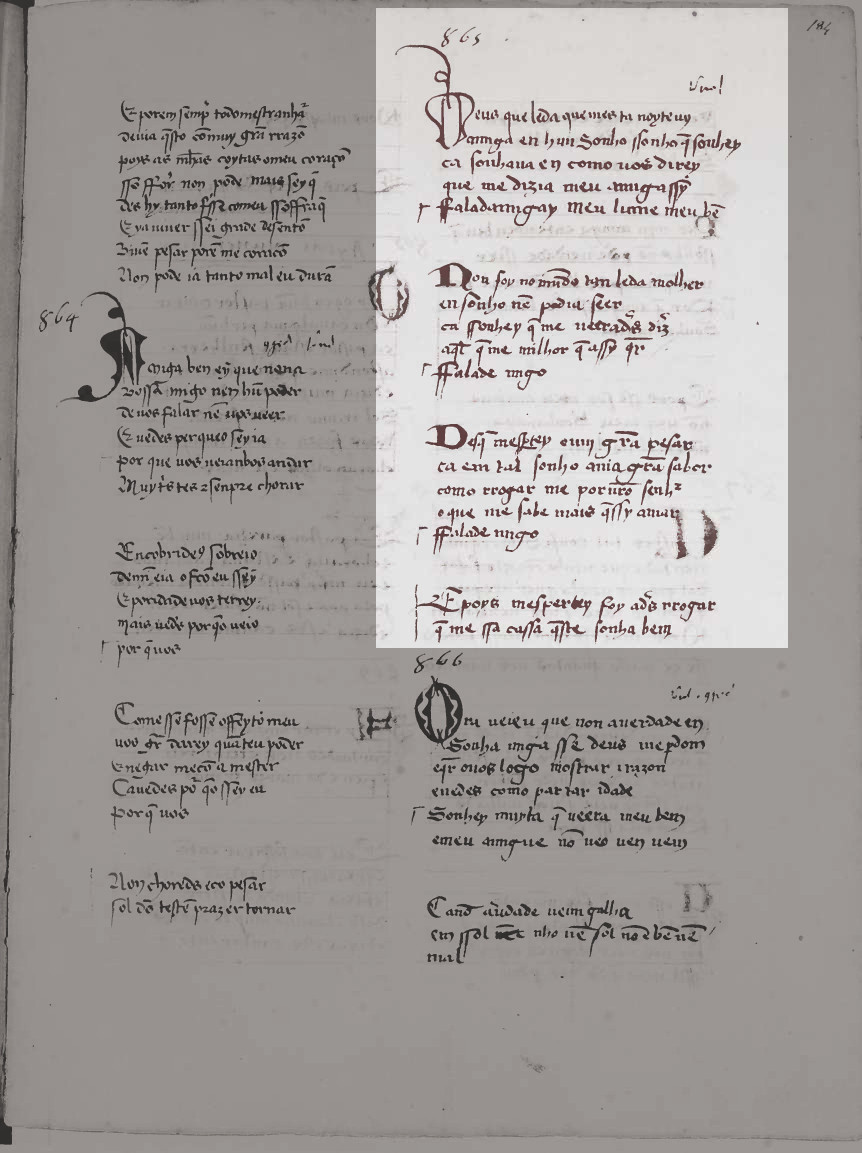 184
E poren semp̃ todomestranhar̃
deuia q̃sto cõ muy grã rrazõ
poys as mh̃as coytus omeu coraçõ
ssẽ ffoȓ non pode mais sey q̃
des hy tanto
E ya uiuer
Viuẽ pesar porẽ me coraçõ
Non pode ia tanto mal eu durã
864
Amiga ben ey que nona
Vossã migo nen hũ poder
de uos falar nẽ uꝑs ueer
E uedes per queo sey ia
por que uos ueianbos andar
Muy tr̃stes ⁊ senpre chorar
Encobrideꝰ sobreio
E poridade uos terrey
mais ued̃s por q̃o ueio
por q̃ uos
Come ssẽ fossẽ o ffeytõ meu
uoo gr̃ darey quãteu poder
E negar mecõ a mester
Ca uedes po᷉ q̃o ssey eu
por q̃ uos
Non choreds eco pesar
sol dõ testẽ prazer tornar
865
Deus que leda que mes ta noyte uy
amiga en hun Sonho ssonho q̃ sonhey
ca sonhaua en como uos direy
que me dizia meu amigassy
Falada migay meu lume meu bẽ
Non foy no mũdo tan leda molher
en sonho nẽ podia seer
ca ssonhey q̃ me ueerad̃s diz̃
aq̃l q̃ me milhor q̃ assy q̃r
ffalade migo
Des q̃ mesp̃tey ouui grã pesar
ca em tal sonho auia grã sabor
como rrogar me por nr̃o senhr̃
o que me sabe mais q̃ssy amar
ffalade migo
E poys mespertey foy ad̃s rrogar
q̃ me ssa cassa q̃ste sonha bem
866
Ora ueieu que non auerdade en
Sonha miga sse deus me p̃dom
e q̃r ouos logo mostrar i razon
e uedes como par tar idade
Sonhey muyta q̃ ueera meu bem
e meu amigue nõ ueo nen uem
Cand aũdade uemigalha
em ssol nho uẽ sol nõ e bẽ uẽ
mal